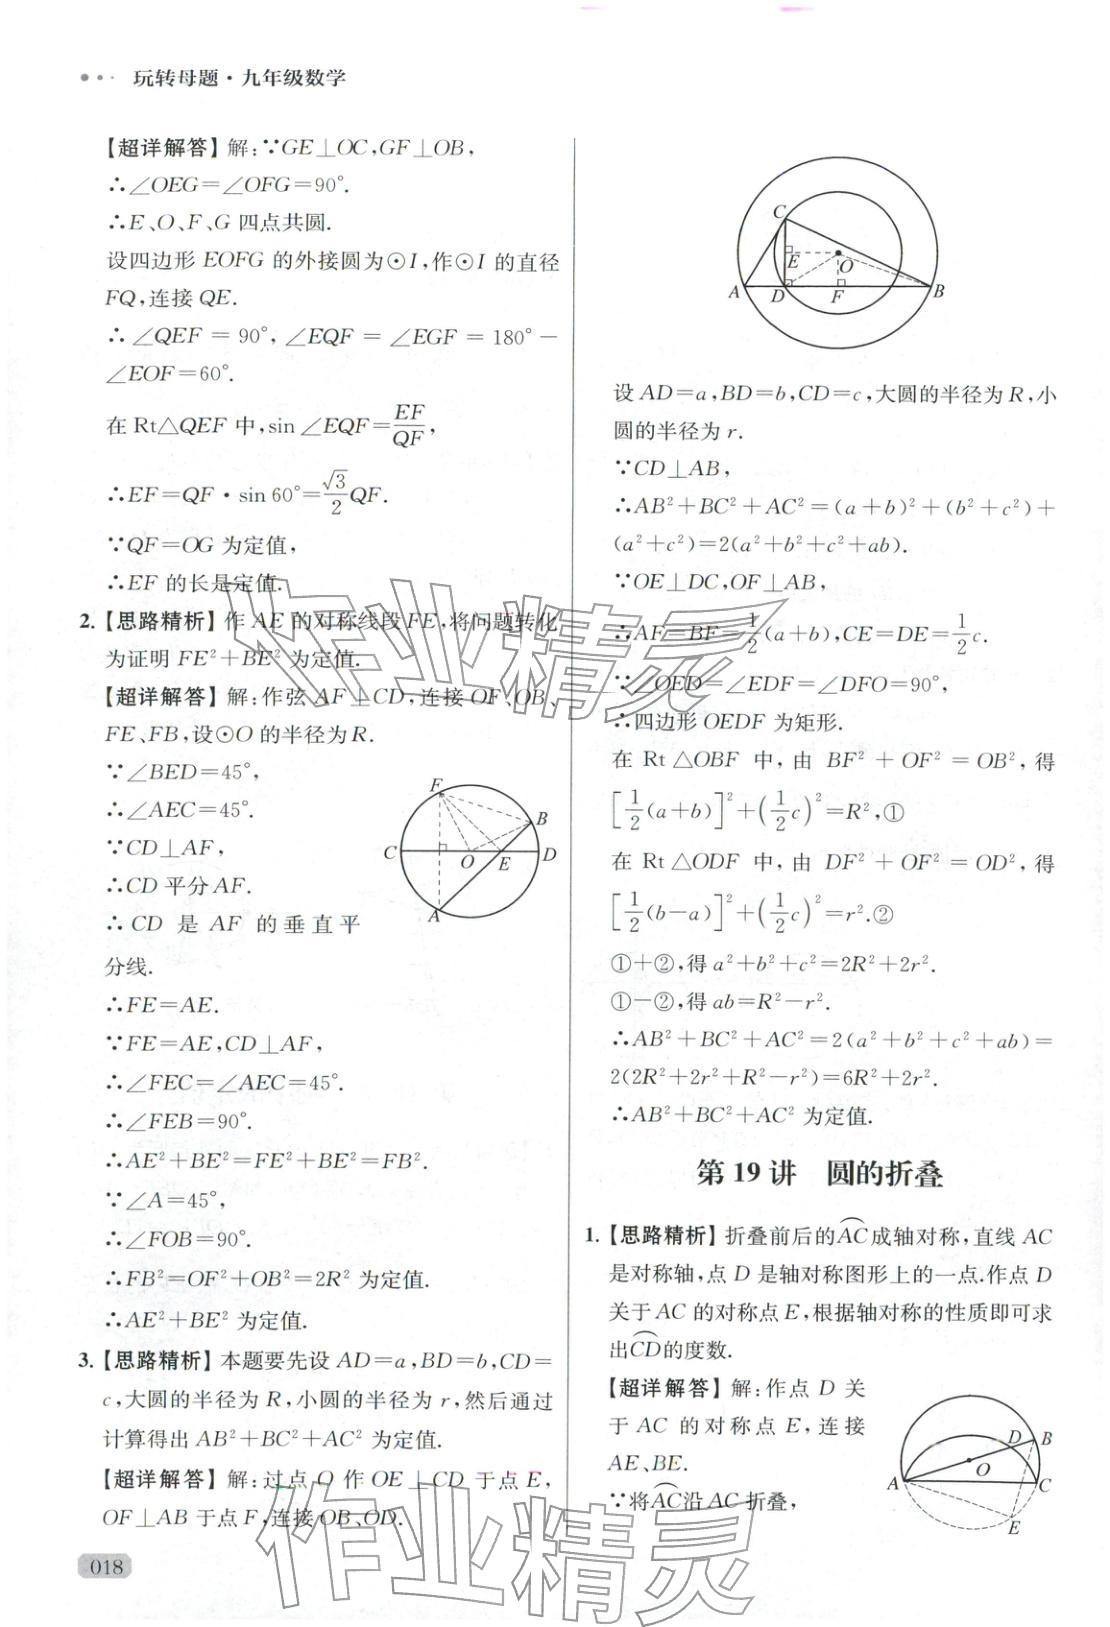 玩转母题·九年级数学
【超详解答】解:∵GE⊥OC,GF⊥OB,
∴∠OEG=∠OFG=90°.
∴E、O、F、G 四点共圆.
设四边形 EOFG 的外接圆为⊙I,作⊙I 的直径
FQ,连接 QE.
∴∠QEF=90°,∠EQF=∠EGF=180°-
∠EOF=60°.
在 Rt△QEF 中,sin∠EQF=EF/QF,
∴EF=QF·sin60°=√3/2 QF.
∵QF=OG 为定值,
∴EF 的长是定值.
2.【思路精析】作 AE 的对称线段 FE,将问题转化
为证明 FE²+BE² 为定值.
【超详解答】解:作弦 AF⊥CD,连接 OF、OB、
FE、FB,设⊙O 的半径为 R.
∵∠BED=45°,
∴∠AEC=45°.
∵CD⊥AF,
∴CD 平分 AF.
∴CD 是 AF 的垂直平
分线.
F
B
C
O
E
D
A
∴FE=AE.
∵FE=AE,CD⊥AF,
∴∠FEC=∠AEC=45°.
∴∠FEB=90°.
∴AE²+BE²=FE²+BE²=FB².
∵∠A=45°,
∴∠FOB=90°.
∴FB²=OF²+OB²=2R² 为定值.
∴AE²+BE² 为定值.
3.【思路精析】本题要先设 AD=a,BD=b,CD=
c,大圆的半径为 R,小圆的半径为 r,然后通过
计算得出 AB²+BC²+AC² 为定值.
【超详解答】解:过点 O 作 OE⊥CD 于点 E,
OF⊥AB 于点 F,连接 OB、OD.
018
C
E
O
A
D
F
B
设 AD=a,BD=b,CD=c,大圆的半径为 R,小
圆的半径为 r.
∵CD⊥AB,
∴AB²+BC²+AC²=(a+b)²+(b²+c²)+
(a²+c²)=2(a²+b²+c²+ab).
∵OE⊥DC,OF⊥AB,
∴AF=BF=1/2(a+b),CE=DE=1/2 c.
∵∠OED=∠EDF=∠DFO=90°,
∴四边形 OEDF 为矩形.
在 Rt△OBF 中,由 BF²+OF²=OB²,得
[1/2(a+b)]²+(1/2 c)²=R²,①
在 Rt△ODF 中,由 DF²+OF²=OD²,得
[1/2(b-a)]²+(1/2 c)²=r².②
①+②,得 a²+b²+c²=2R²+2r².
①-②,得 ab=R²-r².
∴AB²+BC²+AC²=2(a²+b²+c²+ab)=
2(2R²+2r²+R²-r²)=6R²+2r².
∴AB²+BC²+AC² 为定值.
第 19 讲 圆的折叠
1.【思路精析】折叠前后的A͡C成轴对称,直线 AC
是对称轴,点 D 是轴对称图形上的一点.作点 D
关于 AC 的对称点 E,根据轴对称的性质即可求
出C͡D的度数.
【超详解答】解:作点 D 关
于 AC 的对称点 E,连接
AE、BE.
∵将A͡C沿 AC 折叠,
D
B
O
A
C
E
作业精灵
作业精灵